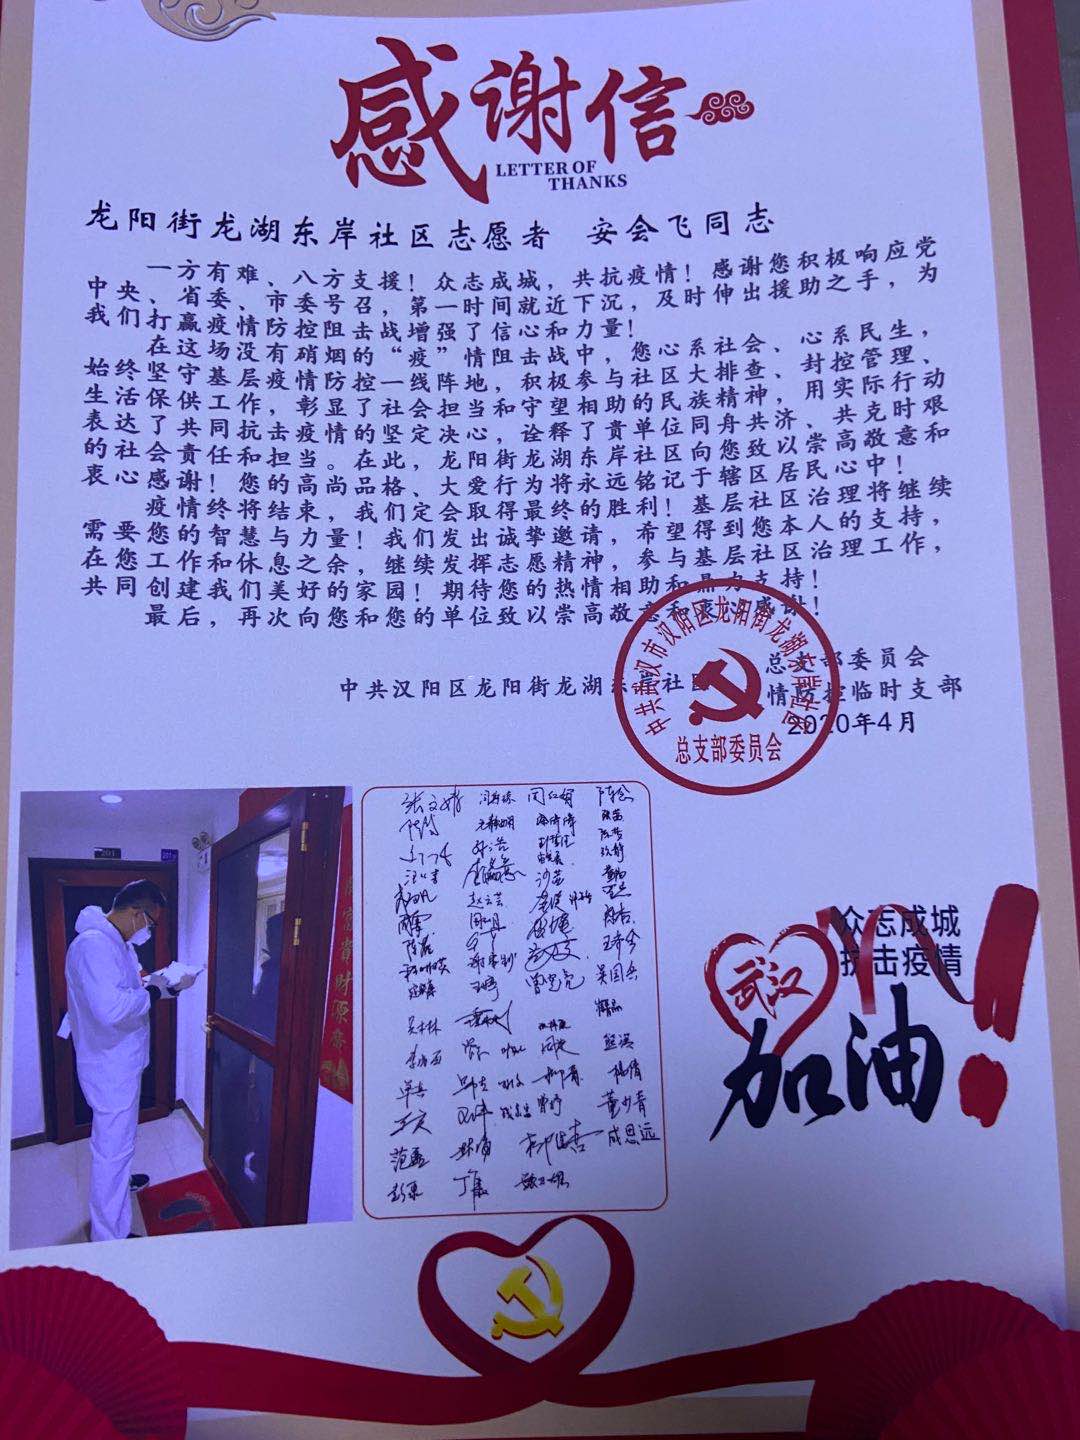 感谢信
LETTER OF
THANKS
龙阳街龙湖东岸社区志愿者 安会飞同志
一方有难、八方支援！众志成城，共抗疫情！感谢您积极响应党
中央、省委、市委号召，第一时间就近下沉，及时伸出援助之手，为
我们打赢疫情防控阻击战增强了信心和力量！
在这场没有硝烟的“疫”情阻击战中，您心系社会、心系民生，
始终坚守基层疫情防控一线阵地，积极参与社区大排查、封控管理、
生活保供工作，彰显了社会担当和守望相助的民族精神，用实际行动
表达了共同抗击疫情的坚定决心，诠释了贵单位同舟共济、共克时艰
的社会责任和担当。在此，龙阳街龙湖东岸社区向您致以崇高敬意和
衷心感谢！您的高尚品格、大爱行为将永远铭记于辖区居民心中！
疫情终将结束，我们定会取得最终的胜利！基层社区治理将继续
需要您的智慧与力量！我们发出诚挚邀请，希望得到您本人的支持，
在您工作和休息之余，继续发挥志愿精神，参与基层社区治理工作，
共同创建我们美好的家园！期待您的热情相助和鼎力支持！
最后，再次向您和您的单位致以崇高敬意和衷心感谢！
中共汉阳区龙阳街龙湖东岸社区 总支部委员会
情防控临时支部
2020年4月
中共武汉市汉阳区龙阳街龙湖东岸社区
总支部委员会
张文婷 陈念
孙浩
赵云芸
王奇令
曾宪亮 吴国兵
吴木林
熊滨
杨倩
董少青
范磊 成恩远
富贵财源
众志成城
抗击疫情
武汉
加油！